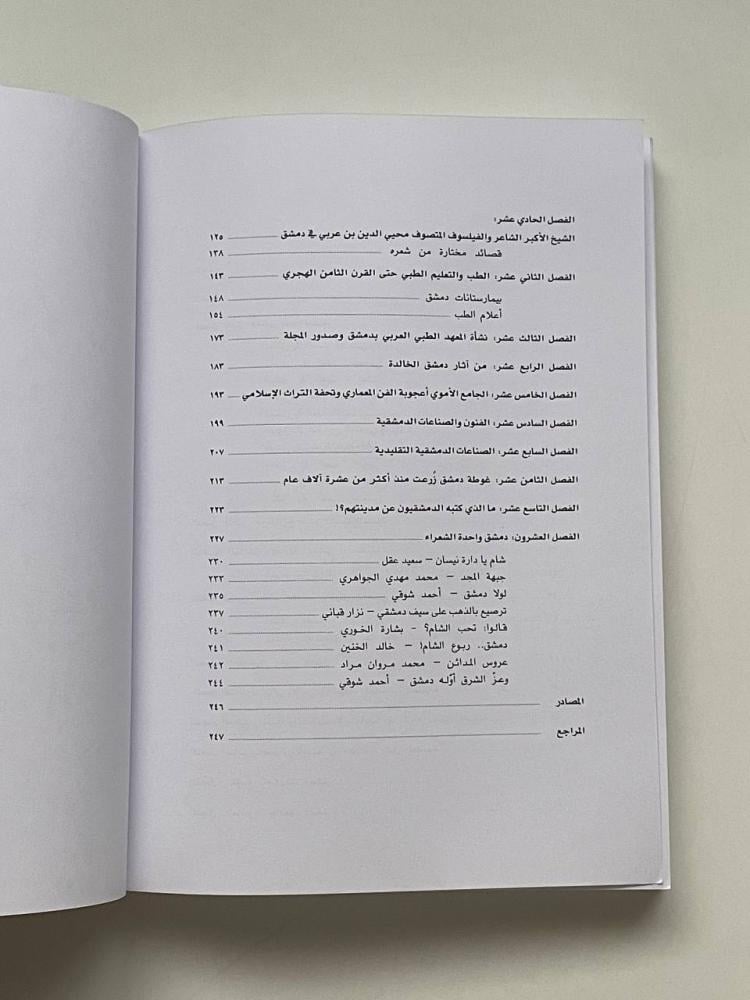 الفصل الحادي عشر:
الشيخ الأكبر الشاعر والفيلسوف المتصوف محيي الدين بن عربي في دمشق ١٢٥
قصائد مختارة من شعره ١٣٨
الفصل الثاني عشر: الطب والتعليم الطبي حتى القرن الثامن الهجري ١٤٣
بيمارستانات دمشق ١٤٨
أعلام الطب ١٥٤
الفصل الثالث عشر: نشأة المعهد الطبي العربي بدمشق وصدور المجلة ١٧٣
الفصل الرابع عشر: من آثار دمشق الخالدة ١٨٣
الفصل الخامس عشر: الجامع الأموي أعجوبة الفن المعماري وتحفة التراث الإسلامي ١٩٣
الفصل السادس عشر: الفنون والصناعات الدمشقية ١٩٩
الفصل السابع عشر: الصناعات الدمشقية التقليدية ٢٠٧
الفصل الثامن عشر: غوطة دمشق زُرعت منذ أكثر من عشرة آلاف عام ٢١٣
الفصل التاسع عشر: ما الذي كتبه الدمشقيون عن مدينتهم؟! ٢٢٣
الفصل العشرون: دمشق واحدة الشعراء ٢٢٧
شام يا دارة نيسان – سعيد عقل ٢٣٠
جبهة المجد – محمد مهدي الجواهري ٢٣٣
لولا دمشق – أحمد شوقي ٢٣٥
ترصيع بالذهب على سيف دمشقي – نزار قباني ٢٣٧
قالوا: تحب الشام؟ - بشارة الخوري ٢٤٠
دمشق.. ربوع الشام! – خالد الخنين ٢٤١
عروس المدائن – محمد مروان مراد ٢٤٢
وعزّ الشرق أوّله دمشق – أحمد شوقي ٢٤٤
المصادر ٢٤٦
المراجع ٢٤٧